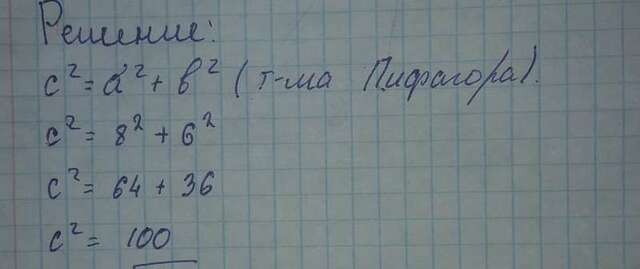 Решение:
c² = a² + b² (т-ма Пифагора).
c² = 8² + 6²
c² = 64 + 36
c² = 100